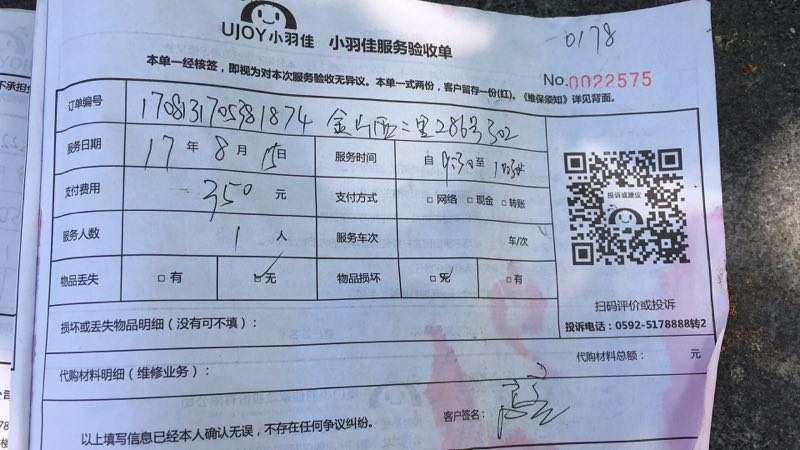 UJOY小羽佳 小羽佳服务验收单
0178
本单一经核签，即视为对本次服务验收无异议。本单一式两份，客户留存一份(红)。《维保须知》详见背面。
No.0022575
订单编号 1708131705381874 金山西二里286号302
服务日期 17年8月15日 服务时间 自9:30至
支付费用 350元 支付方式 □网络 □现金 □转账
服务人数 1人 服务车次 车/次
物品丢失 □有 ☑无 物品损坏 ☑无 □有
投诉或建议
扫码评价或投诉
投诉电话：0592-5178888转2
损坏或丢失物品明细（没有可不填）：
代购材料总额： 元
代购材料明细（维修业务）：
客户签名：
以上填写信息已经本人确认无误，不存在任何争议纠纷。